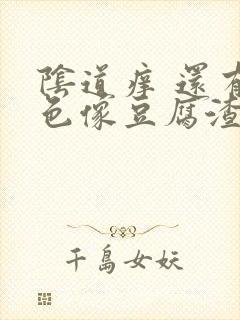 陰道痒 還有
色像豆腐渣
千島女妖